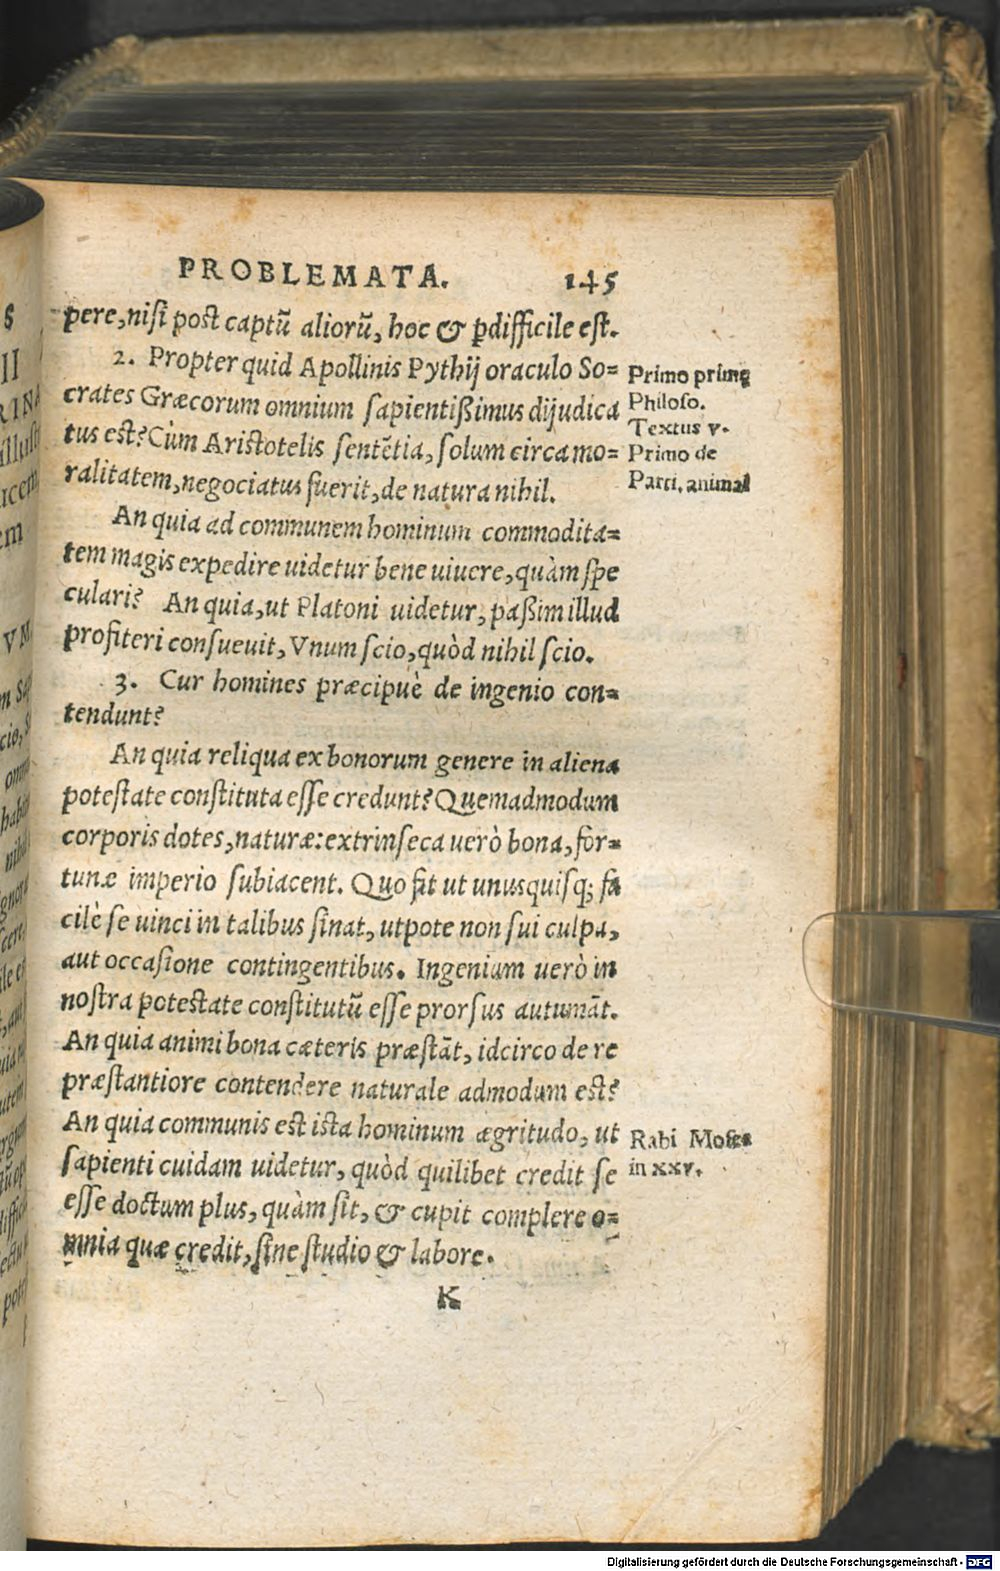 PROBLEMATA. 145
pere, niſi poſt captū aliorū, hoc & ꝑdifficile eſt.
2. Propter quid Apollinis Pythij oraculo So=
crates Græcorum omnium ſapientißimus dijudica
tus eſt? Cùm Ariſtotelis ſentētia, ſolum circa mo=
ralitatem, negociatus fuerit, de natura nihil.
Primo primę
Philoſo.
Textus v.
Primo de
Parti. animal
An quia ad communem hominum commodita=
tem magis expedire uidetur bene uiuere, quàm ſpe
culari? An quia, ut Platoni uidetur, paßim illud
profiteri conſueuit, Vnum ſcio, quòd nihil ſcio.
3. Cur homines præcipuè de ingenio con=
tendunt?
An quia reliqua ex bonorum genere in aliena
poteſtate conſtituta eſſe credunt? Quemadmodum
corporis dotes, naturæ: extrinſeca uerò bona, for=
tunæ imperio ſubiacent. Quo fit ut unusquiſq; fa
cilè ſe uinci in talibus ſinat, utpote non ſui culpa,
aut occaſione contingentibus. Ingenium uerò in
noſtra poteſtate conſtitutū eſſe prorſus autumāt.
An quia animi bona cæteris præſtāt, idcirco de re
præſtantiore contendere naturale admodum eſt?
An quia communis eſt iſta hominum ægritudo, ut
ſapienti cuidam uidetur, quòd quilibet credit ſe
eſſe doctum plus, quàm ſit, & cupit complere o=
mnia quæ credit, ſine ſtudio & labore.
Rabi Moſes
in xxv.
K
Digitalisierung gefördert durch die Deutsche Forschungsgemeinschaft - DFG